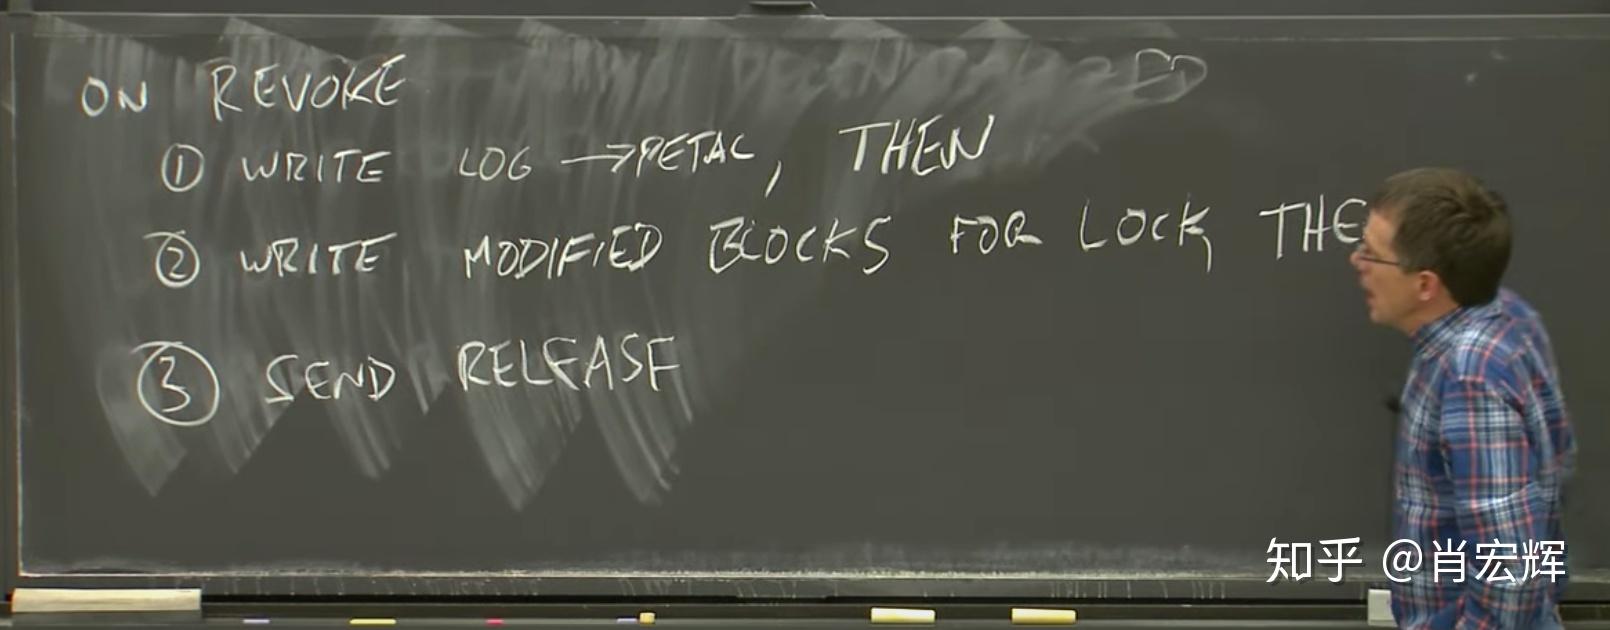 ON REVOKE
① WRITE LOG → PETAL, THEN
② WRITE MODIFIED BLOCKS FOR LOCK, THE
③ SEND RELEASE
知乎 @肖宏辉